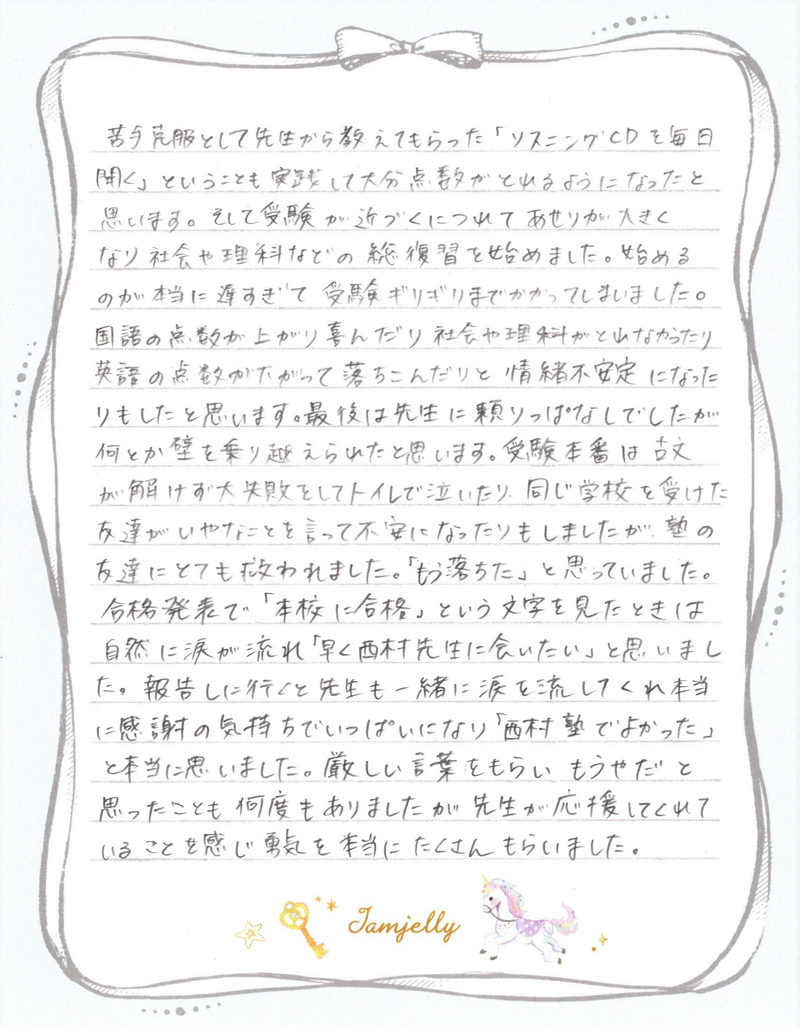 苦手克服として先生から教えてもらった「リスニングCDを毎日
聞く」ということも実践して大分点数がとれるようになったと
思います。そして受験が近づくにつれてあせりが大きく
なり社会や理科などの総復習を始めました。始める
のが本当に遅すぎて受験ギリギリまでかかってしまいました。
国語の点数が上がり喜んだり社会や理科がとれなかったり
英語の点数が下がって落ちこんだりと情緒不安定になった
りもしたと思います。最後は先生に頼りっぱなしでしたが
何とか壁を乗り越えられたと思います。受験本番は古文
が解けず大失敗をしてトイレで泣いたり、同じ学校を受けた
友達がいやなことを言って不安になったりもしましたが、塾の
友達にとても救われました。「もう落ちた」と思っていました。
合格発表で「本校に合格」という文字を見たときは
自然に涙が流れ「早く西村先生に会いたい」と思いまし
た。報告しに行くと先生も一緒に涙を流してくれ本当
に感謝の気持ちでいっぱいになり「西村塾でよかった」
と本当に思いました。厳しい言葉をもらいもうやだと
思ったことも何度もありましたが先生が応援してくれて
いることを感じ勇気を本当にたくさんもらいました。
Jamjelly